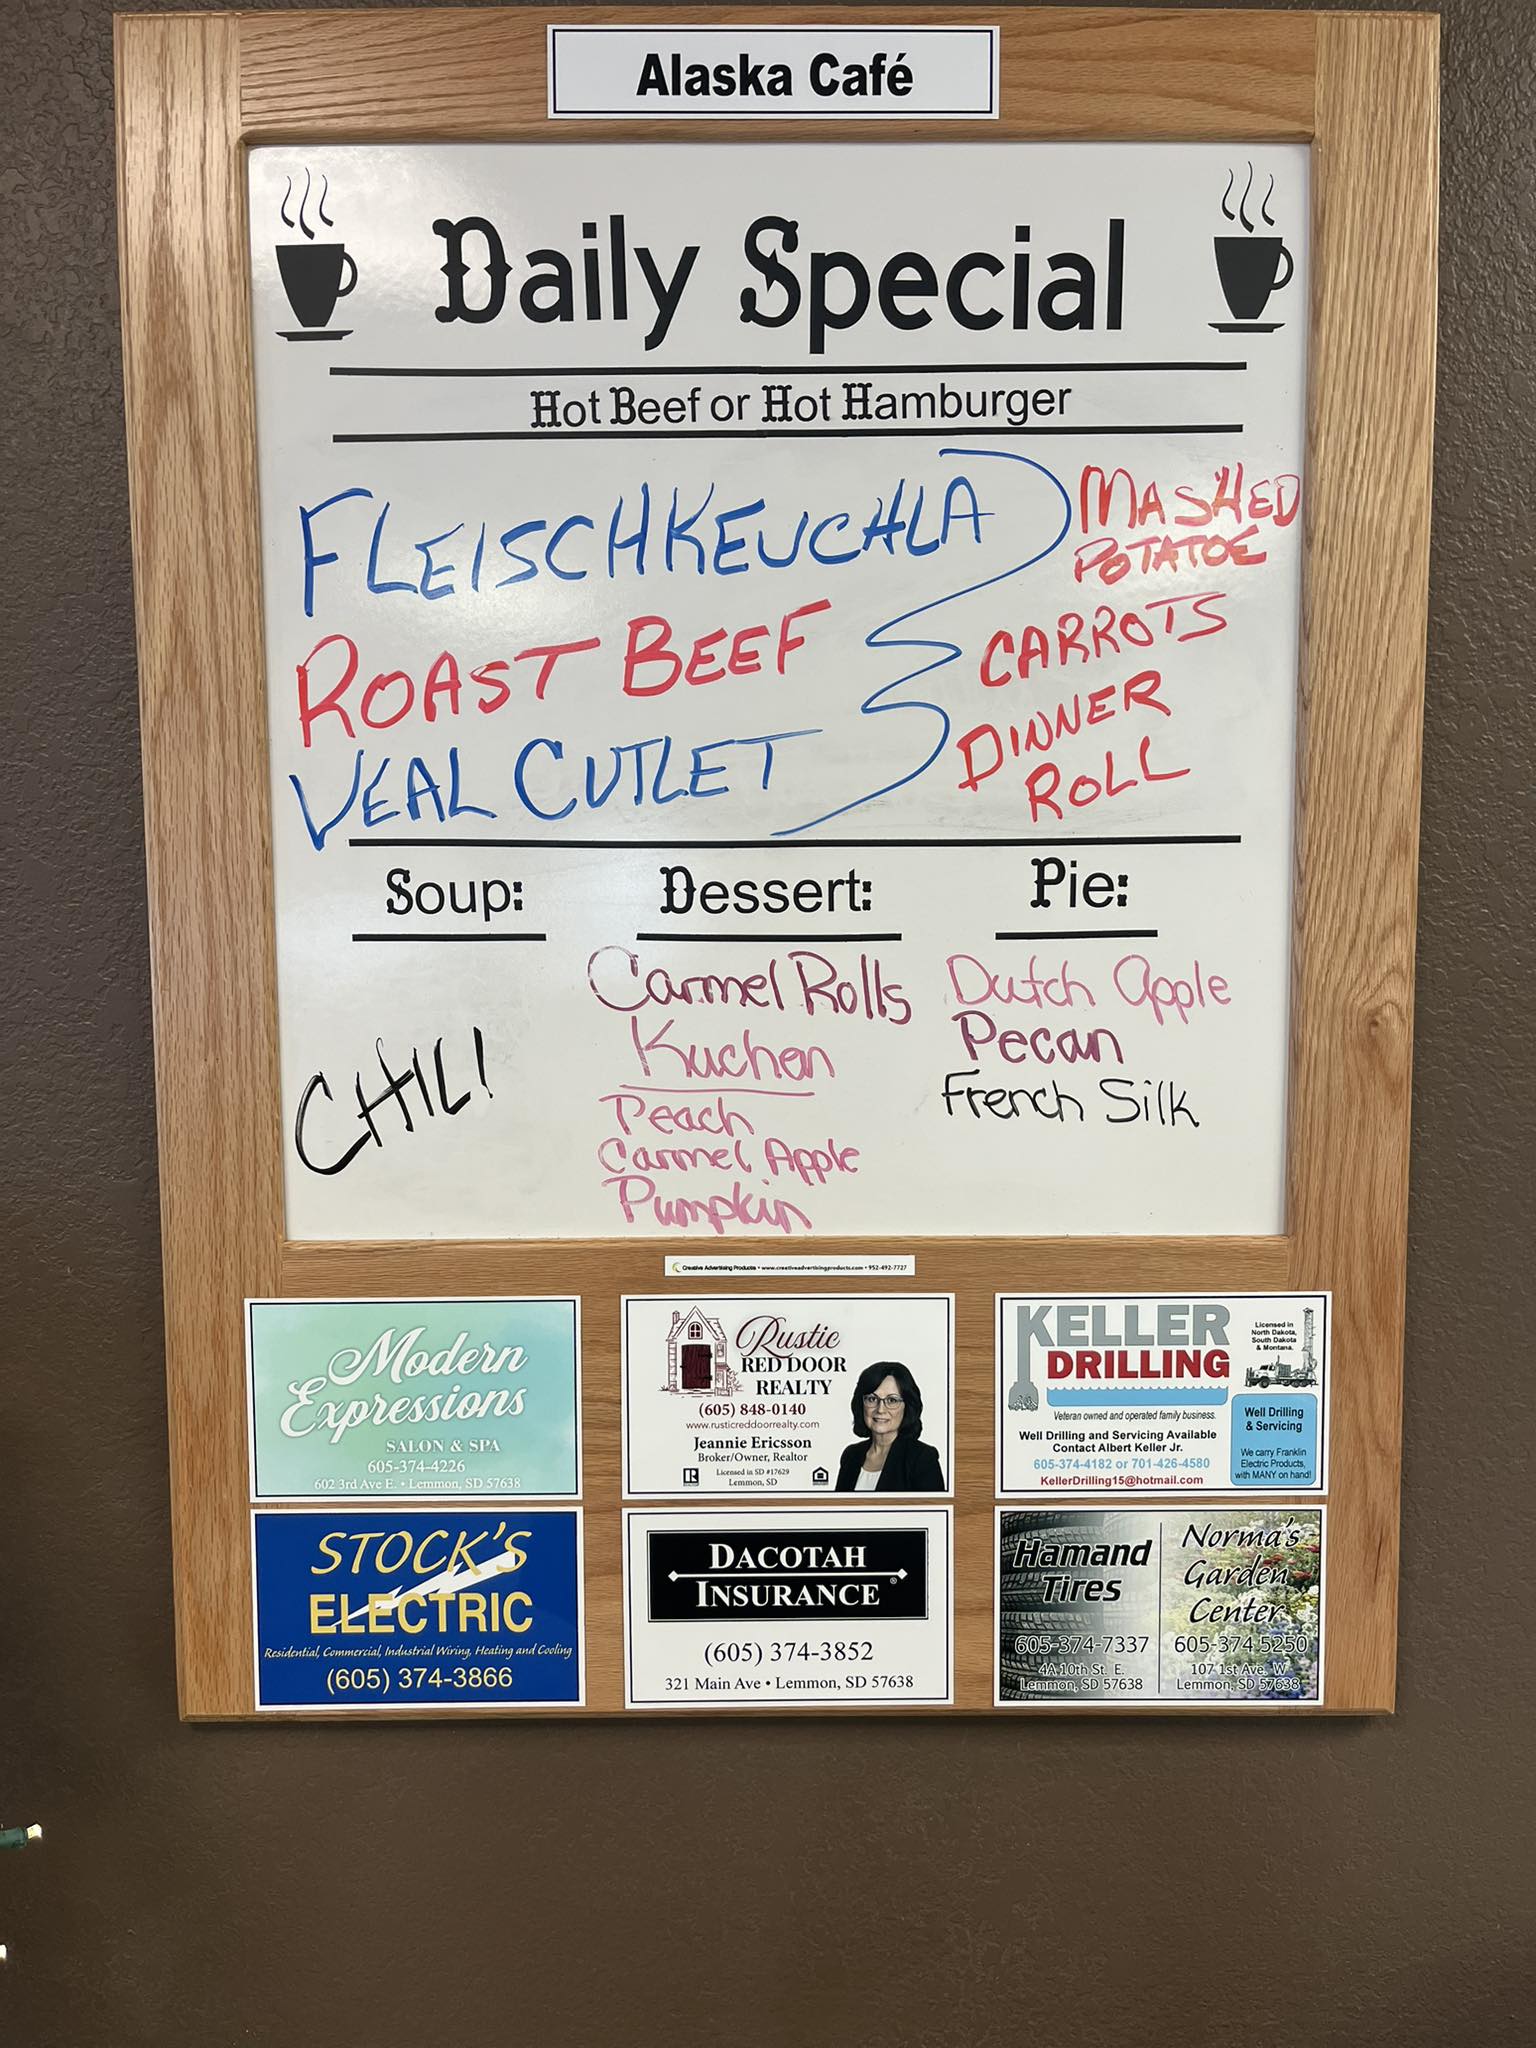 Alaska Café
Daily Special
Hot Beef or Hot Hamburger
FLEISCHKEUCHLA
ROAST BEEF
VEAL CUTLET
MASHED
POTATOE
CARROTS
DINNER
ROLL
Soup:
CHILI
Dessert:
Carmel Rolls
Kuchen
Peach
Carmel Apple
Pumpkin
Pie:
Dutch Apple
Pecan
French Silk
Creative Advertising Products • www.creativeadvertisingproducts.com • 952-492-7727
Modern
Expressions
SALON & SPA
605-374-4226
602 3rd Ave E. • Lemmon, SD 57638
Rustic
RED DOOR
REALTY
(605) 848-0140
www.rusticreddoorrealty.com
Jeannie Ericsson
Broker/Owner, Realtor
Licensed in SD #17629
Lemmon, SD
KELLER
DRILLING
Licensed in
North Dakota,
South Dakota
& Montana.
Veteran owned and operated family business.
Well Drilling and Servicing Available
Contact Albert Keller Jr.
605-374-4182 or 701-426-4580
KellerDrilling15@hotmail.com
Well Drilling
& Servicing
We carry Franklin
Electric Products,
with MANY on hand!
STOCK'S
ELECTRIC
Residential, Commercial, Industrial Wiring, Heating and Cooling
(605) 374-3866
DACOTAH
INSURANCE®
(605) 374-3852
321 Main Ave • Lemmon, SD 57638
Hamand
Tires
605-374-7337
4A 10th St. E.
Lemmon, SD 57638
Norma's
Garden
Center
605-374-5250
107 1st Ave. W
Lemmon, SD 57638